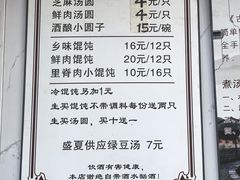 芝麻汤圆 4元/只
鲜肉汤圆 4元/只
酒酿小圆子 15元/碗
乡味馄饨 16元/12只
鲜肉馄饨 20元/12只
里脊肉小馄饨 10元/16只
冷馄饨另加1元
生买馄饨不带调料每份送两只
生买汤圆，买十送一
盛夏供应绿豆汤 7元
饮酒有害健康，
本店谢绝自带酒水
(简
成
手
煮汤